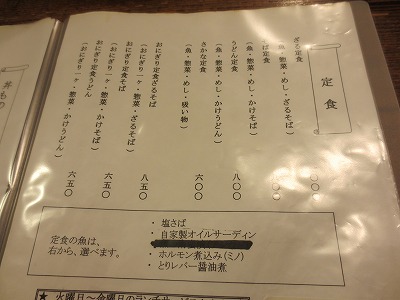 定食
ざる定食
（魚・惣菜・めし・ざるそば）
そば定食
（魚・惣菜・めし・かけそば）
うどん定食
（魚・惣菜・めし・かけうどん）
八〇〇
さかな定食
（魚・惣菜・めし・吸い物）
六〇〇
おにぎり定食ざるそば
（おにぎり一ヶ・惣菜・ざるそば）
八五〇
おにぎり定食そば
（おにぎり一ヶ・惣菜・かけそば）
六五〇
おにぎり定食うどん
（おにぎり一ヶ・惣菜・かけうどん）
六五〇
定食の魚は、
右から、選べます。
・塩さば
・自家製オイルサーディン
・ホルモン煮込み（ミノ）
・とりレバー醤油煮
丼もの